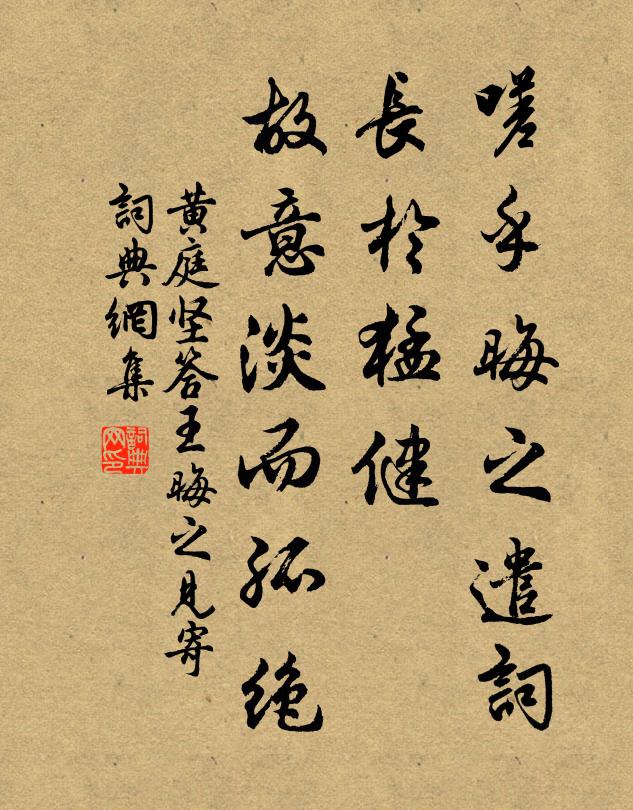 嗟乎晦之遣詞
長於猛健
故意淡而孤絶
黄庭坚答王晦之見寄
詞典網集
詞典网印